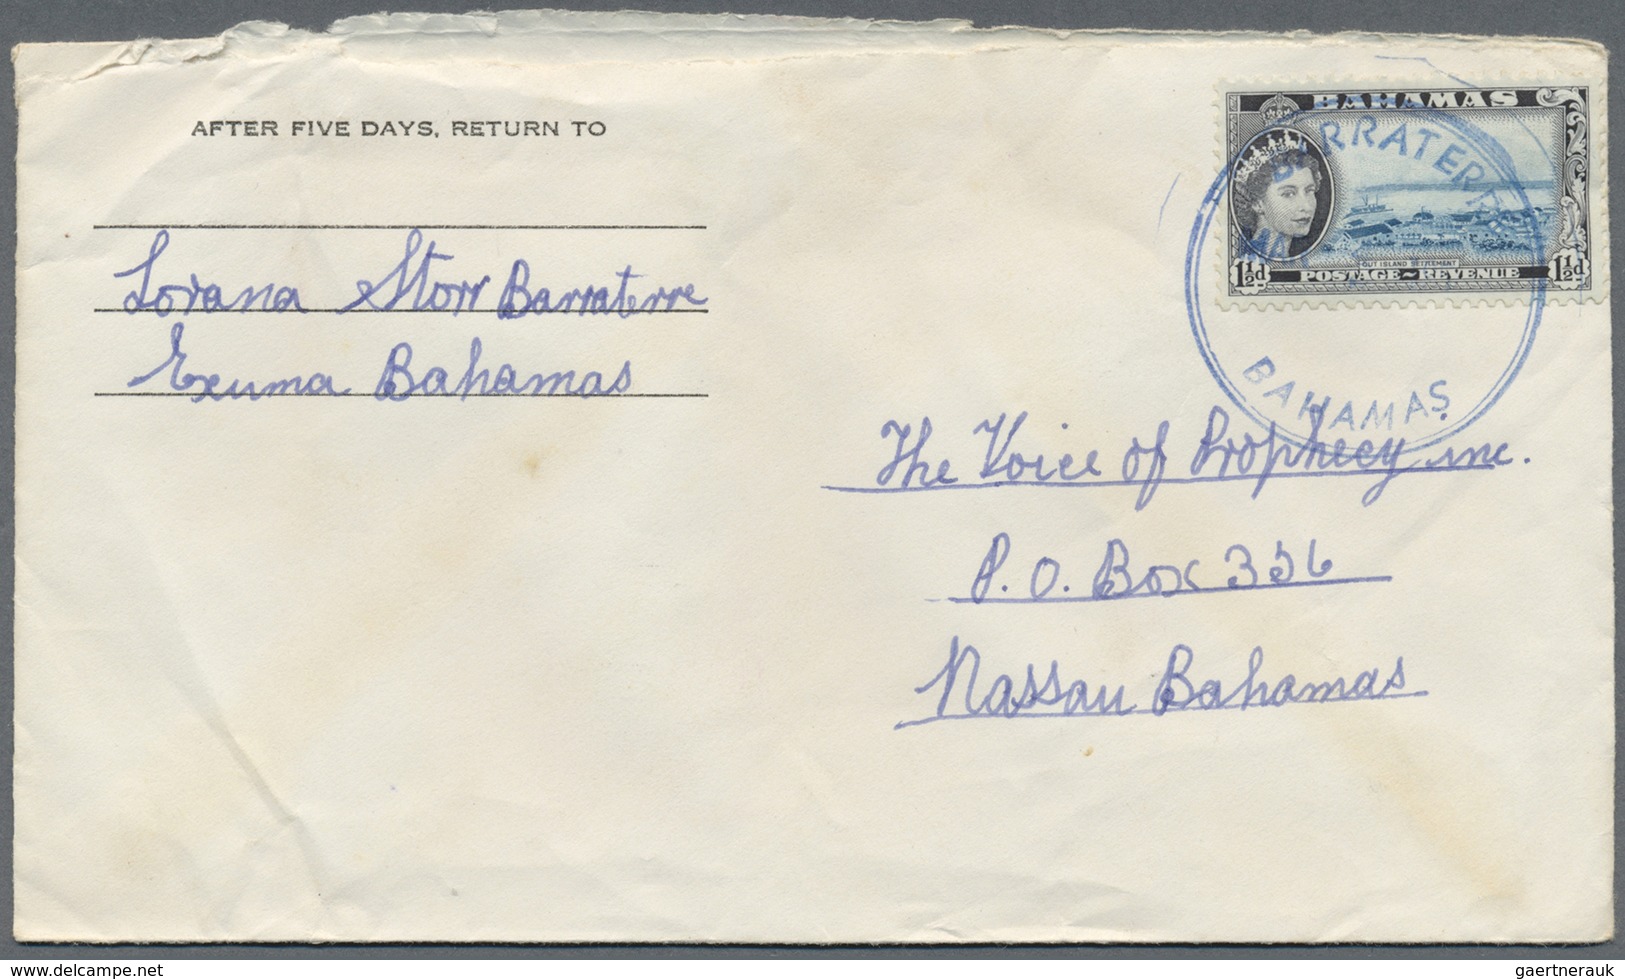 AFTER FIVE DAYS, RETURN TO
Lorana Storr Barraterre
Exuma Bahamas
BAHAMAS
OUT ISLAND SETTLEMENT
1½d POSTAGE~REVENUE 1½d
BARRATERRE
BAHAMAS
The Voice of Prophecy inc.
P.O. Box 356
Nassau Bahamas
www.delcampe.net
gaertnerauk